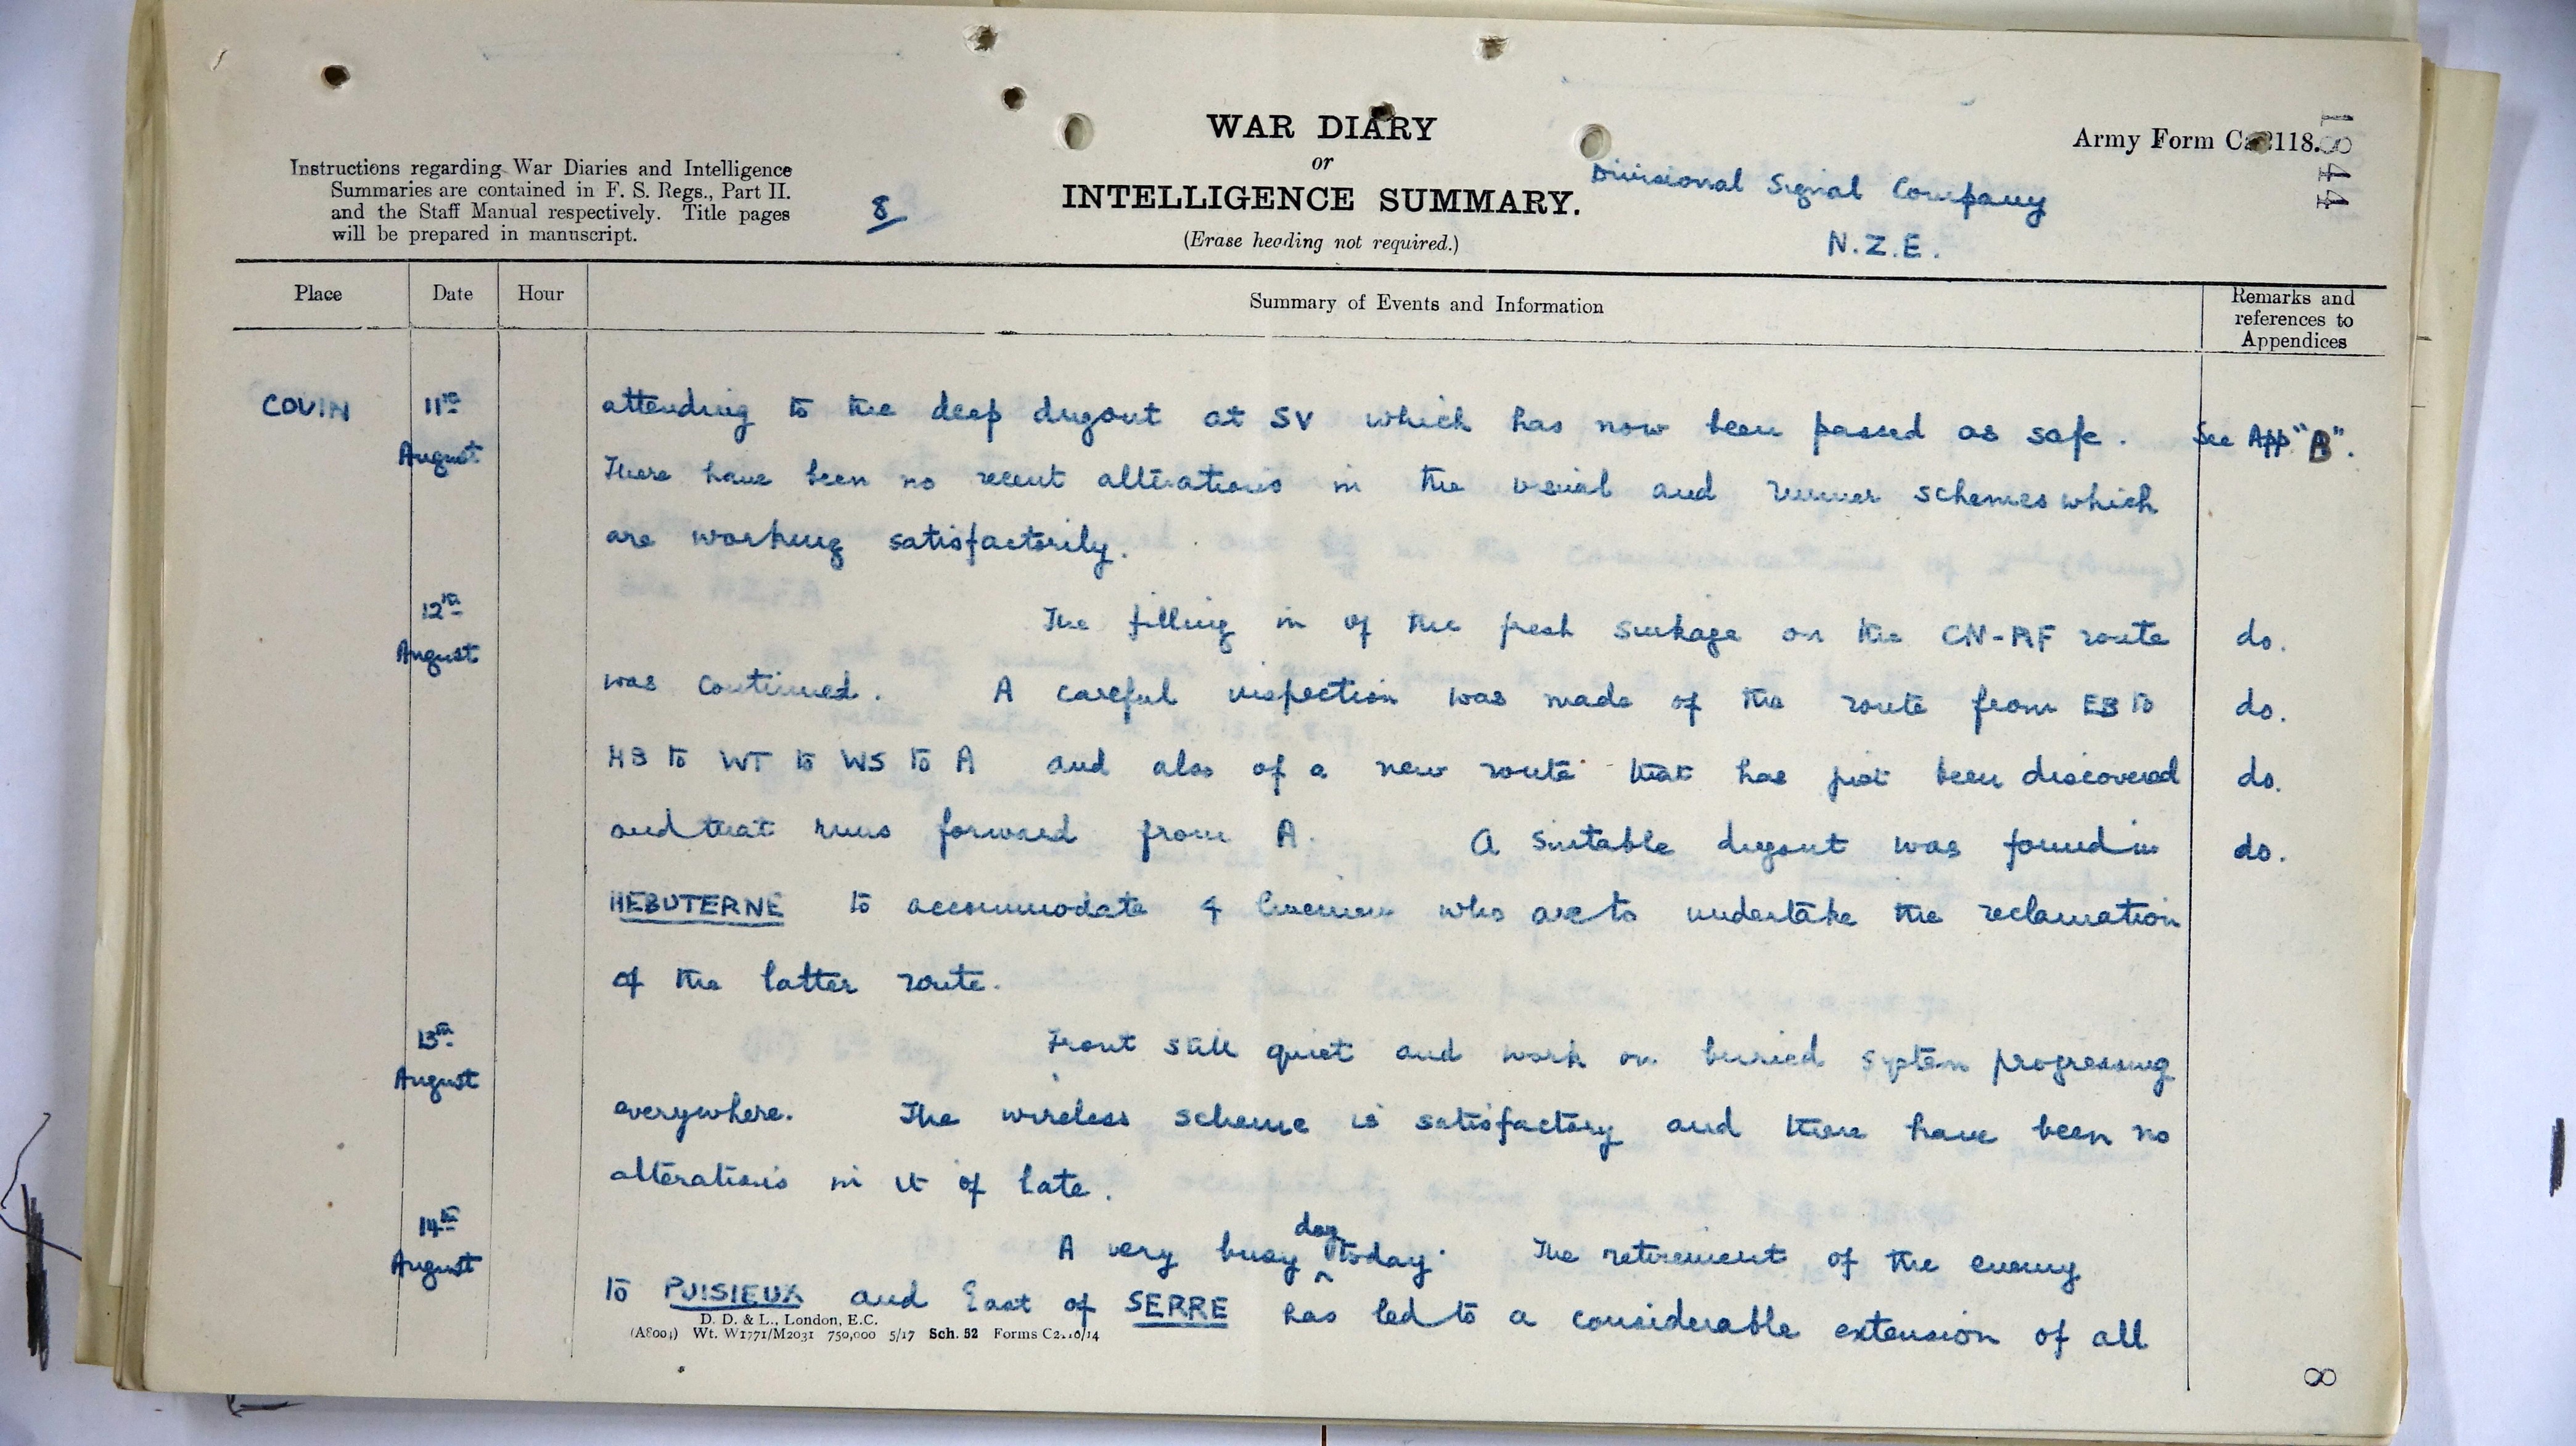 WAR DIARY
or
INTELLIGENCE SUMMARY.
(Erase heading not required.)
Army Form C. 2118.
Instructions regarding War Diaries and Intelligence
Summaries are contained in F. S. Regs., Part II.
and the Staff Manual respectively. Title pages
will be prepared in manuscript.
8
Divisional Signal Company
N.Z.E.
Place Date Hour Summary of Events and Information Remarks and references to Appendices
COUIN 11th August attending to the deep dugout at SV which has now been passed as safe. See App "B".
There have been no recent alterations in the visual and runner schemes which
are working satisfactorily.
12th August The filling in of the fresh sinkage on the CN-AF route do.
was continued. A careful inspection was made of the route from EB to do.
HB to WT to WS to A and also of a new route that has just been discovered do.
and that runs forward from A. A suitable dugout was found in do.
HEBUTERNE to accommodate 4 linemen who are to undertake the reclamation
of the latter route.
13th August Front still quiet and work on buried system progressing
everywhere. The wireless scheme is satisfactory and there have been no
alterations in it of late.
14th August A very busy day today. The retirement of the enemy
to PUISIEUX and East of SERRE has led to a considerable extension of all
D. D. & L., London, E.C.
Wt. W1771/M2031 750,000 5/17 Sch. 52
8